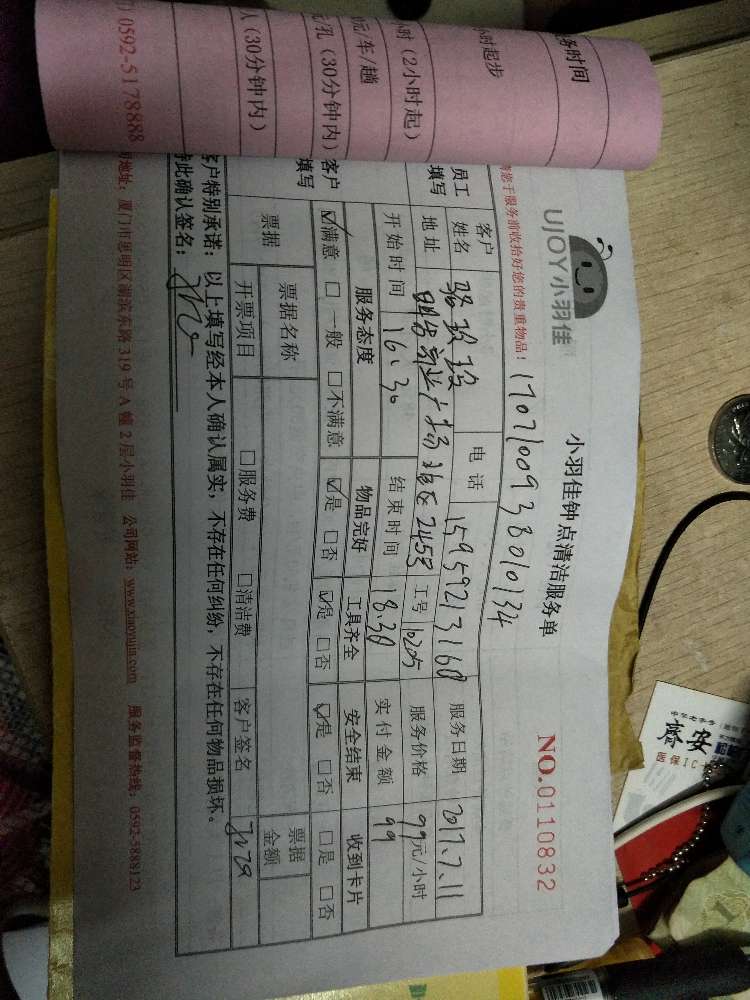 UJOY小羽佳
小羽佳钟点清洁服务单
NO.0110832
请您于服务前收拾好您的贵重物品!
170710093801034
员工填写
客户姓名
电话
15959213168
服务日期
2017.7.11
地址
2453
工号
10205
服务价格
99元/小时
开始时间
16:30
结束时间
18:30
实付金额
99
客户填写
服务态度
物品完好
工具齐全
安全结束
收到卡片
☑满意 □一般 □不满意
☑是 □否
☑是 □否
☑是 □否
□是 □否
票据
票据名称
票据金额
开票项目
□服务费 □清洁费
客户签名
客户特别承诺:以上填写经本人确认属实,不存在任何纠纷,不存在任何物品损坏。
特此确认签名:
地址:厦门市思明区湖滨东路319号A幢2层小羽佳 公司网站:www.xiaoyujia.com 服务监督热线:0592-5888123
务时间
小时起步
小时(2小时起)
元/车/趟
/孔(30分钟内)
人(30分钟内)
0592-5178888
齊安
医保IC卡